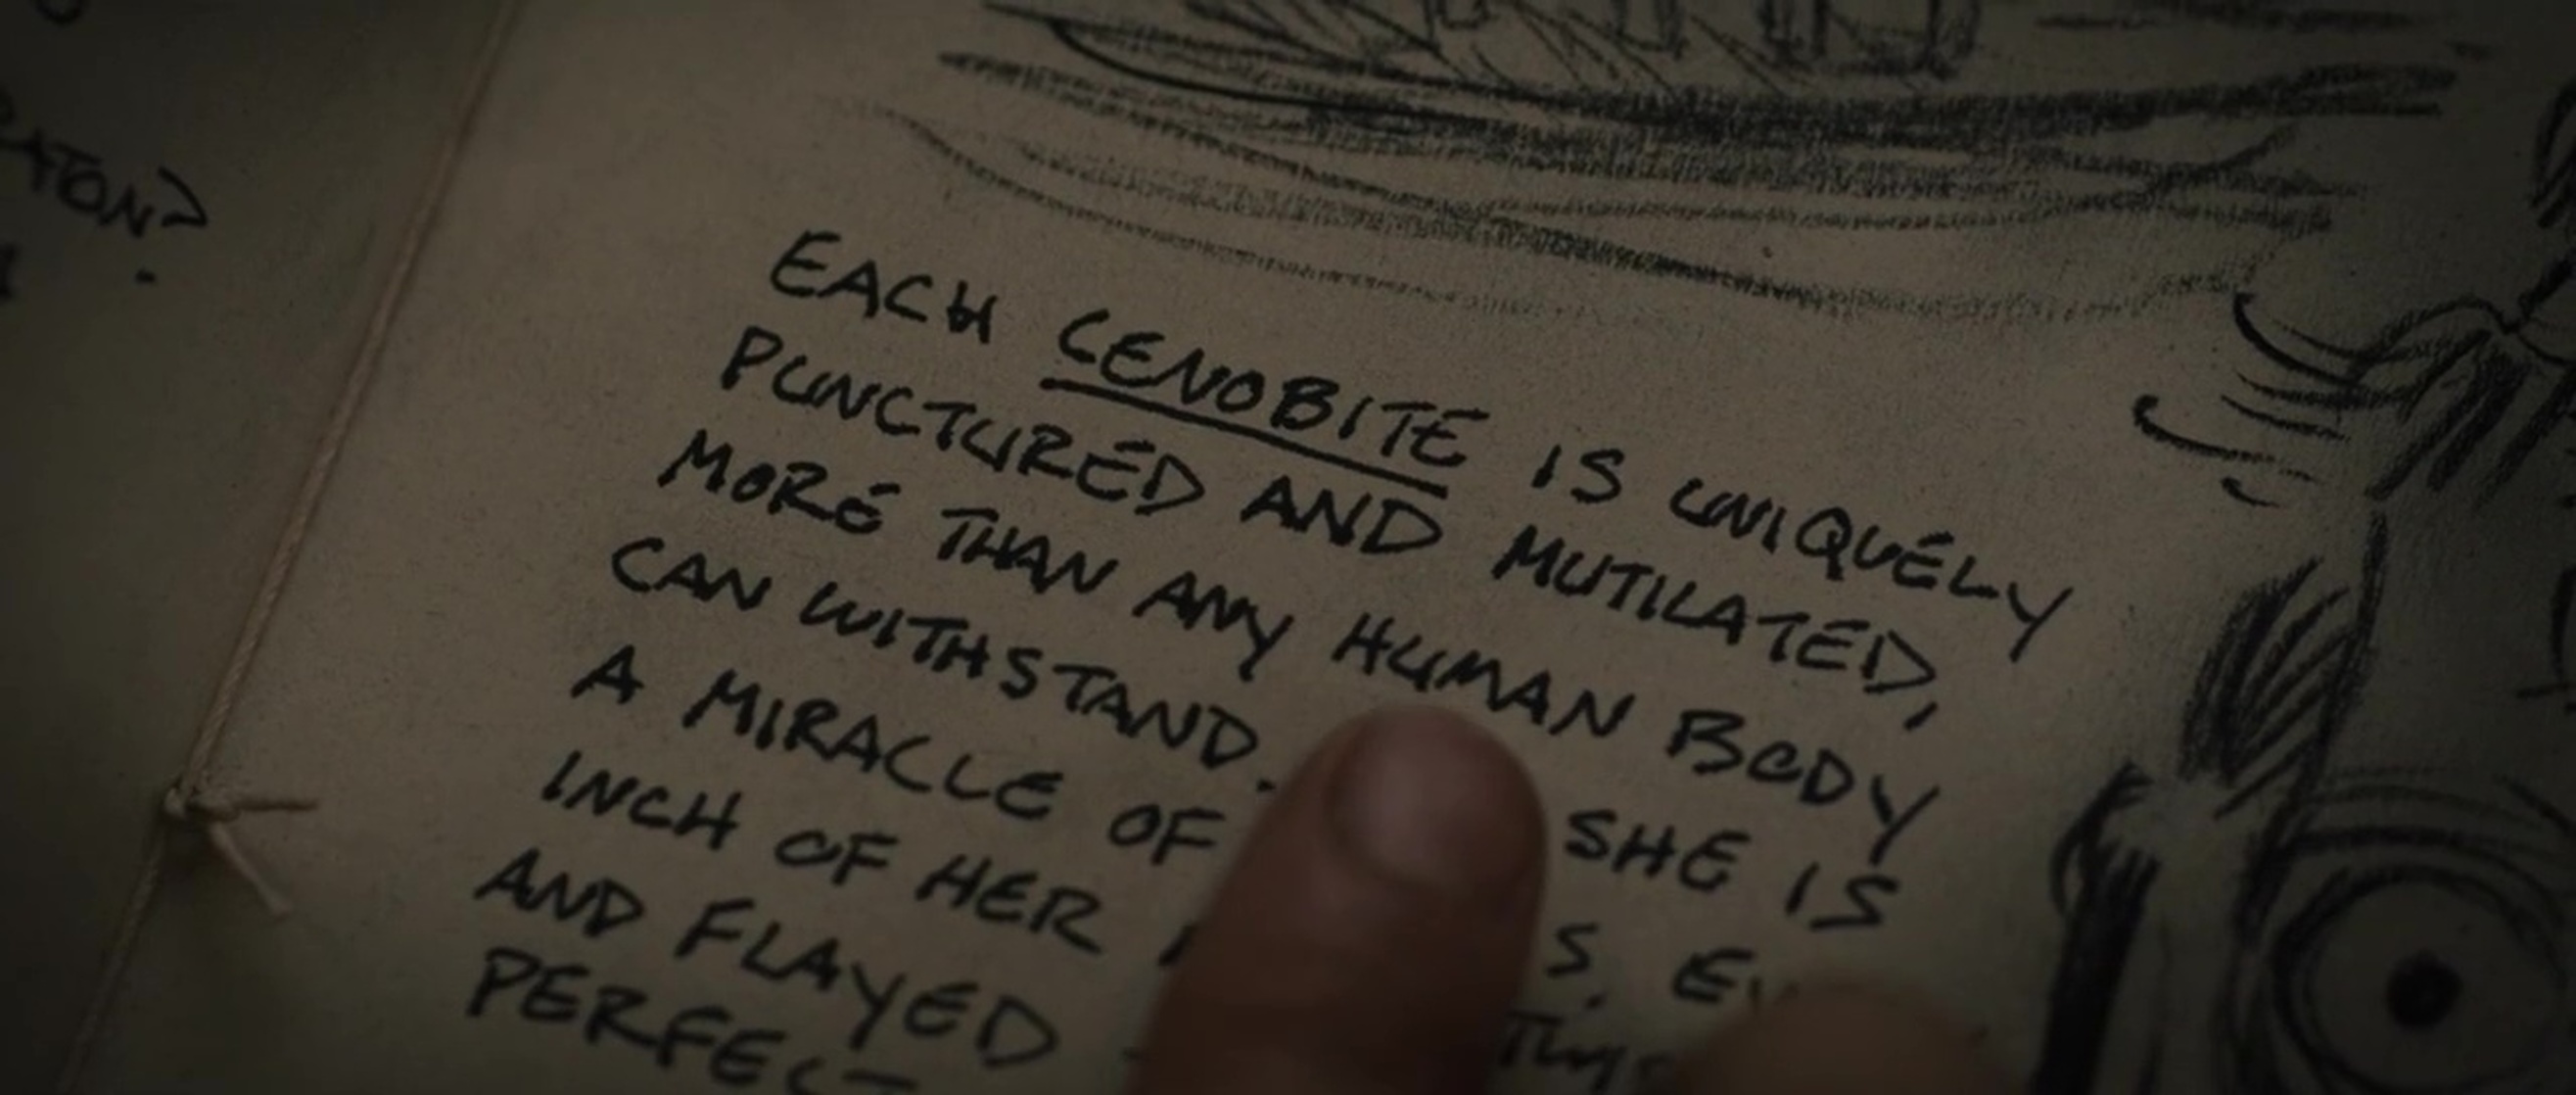 EACH CENOBITE IS UNIQUELY
PUNCTURED AND MUTILATED,
MORE THAN ANY HUMAN BODY
CAN WITHSTAND. SHE IS
A MIRACLE OF
INCH OF HER
AND FLAYED